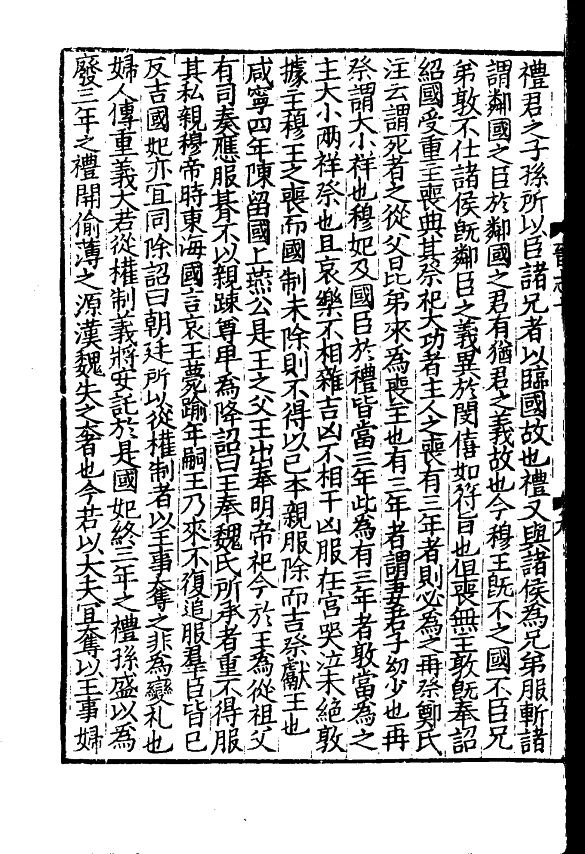 禮君之子孫所以臣諸兄者以臨國故也禮又與諸侯爲兄弟服斬諸
謂鄰國之臣於鄰國之君有猶君之義故也今穆王旣不之國不臣兄
弟敦不仕諸侯旣鄰臣之義異於閔僖如符旨也但喪無主敦旣奉詔
紹國受重主喪典其祭祀大功者主人之喪有三年者則必爲之再祭鄭氏
注云謂死者之從父昆弟來爲喪主也有三年者謂妻若子幼少也再
祭謂大小祥也穆妃及國臣於禮皆當三年此爲有三年者敦當爲之
主大小兩祥祭也且哀樂不相雜吉凶不相干凶服在宮哭泣未絕敦
據主穆王之喪而國制未除則不得以己本親服除而吉祭獻王也
咸寧四年陳留國上燕公是王之父王出奉明帝祀今於王爲從祖父
有司奏應服朞不以親踈尊卑爲降詔曰王奉魏氏所承者重不得服
其私親穆帝時東海國言哀王薨踰年嗣王乃來不復追服羣臣皆已
反吉國妃亦宜同除詔曰朝廷所以從權制者以王事奪之非爲變礼也
婦人傳重義大若從權制義將安託於是國妃終三年之禮孫盛以爲
廢三年之禮開偷薄之源漢魏失之大者也今若以大夫宜奪以王事婦